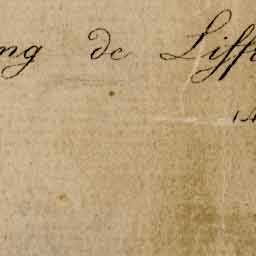 ng de Liff